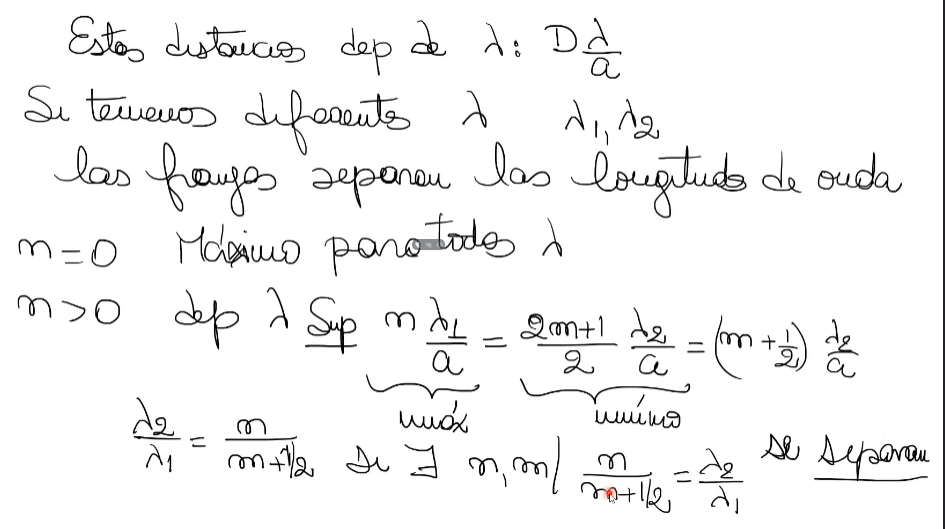 Estas distancias dep de λ: D λ/a
Si tenemos diferentes λ λ₁, λ₂
las franjas separan las longitudes de onda
n = 0 Máximo para todos λ
n > 0 dep λ Sup n λ₁/a = (2m+1)/2 λ₂/a = (m + 1/2) λ₂/a
máx mínimo
λ₂/λ₁ = n/(m+1/2) Si ∃ n, m / n/(m+1/2) = λ₂/λ₁ se separan